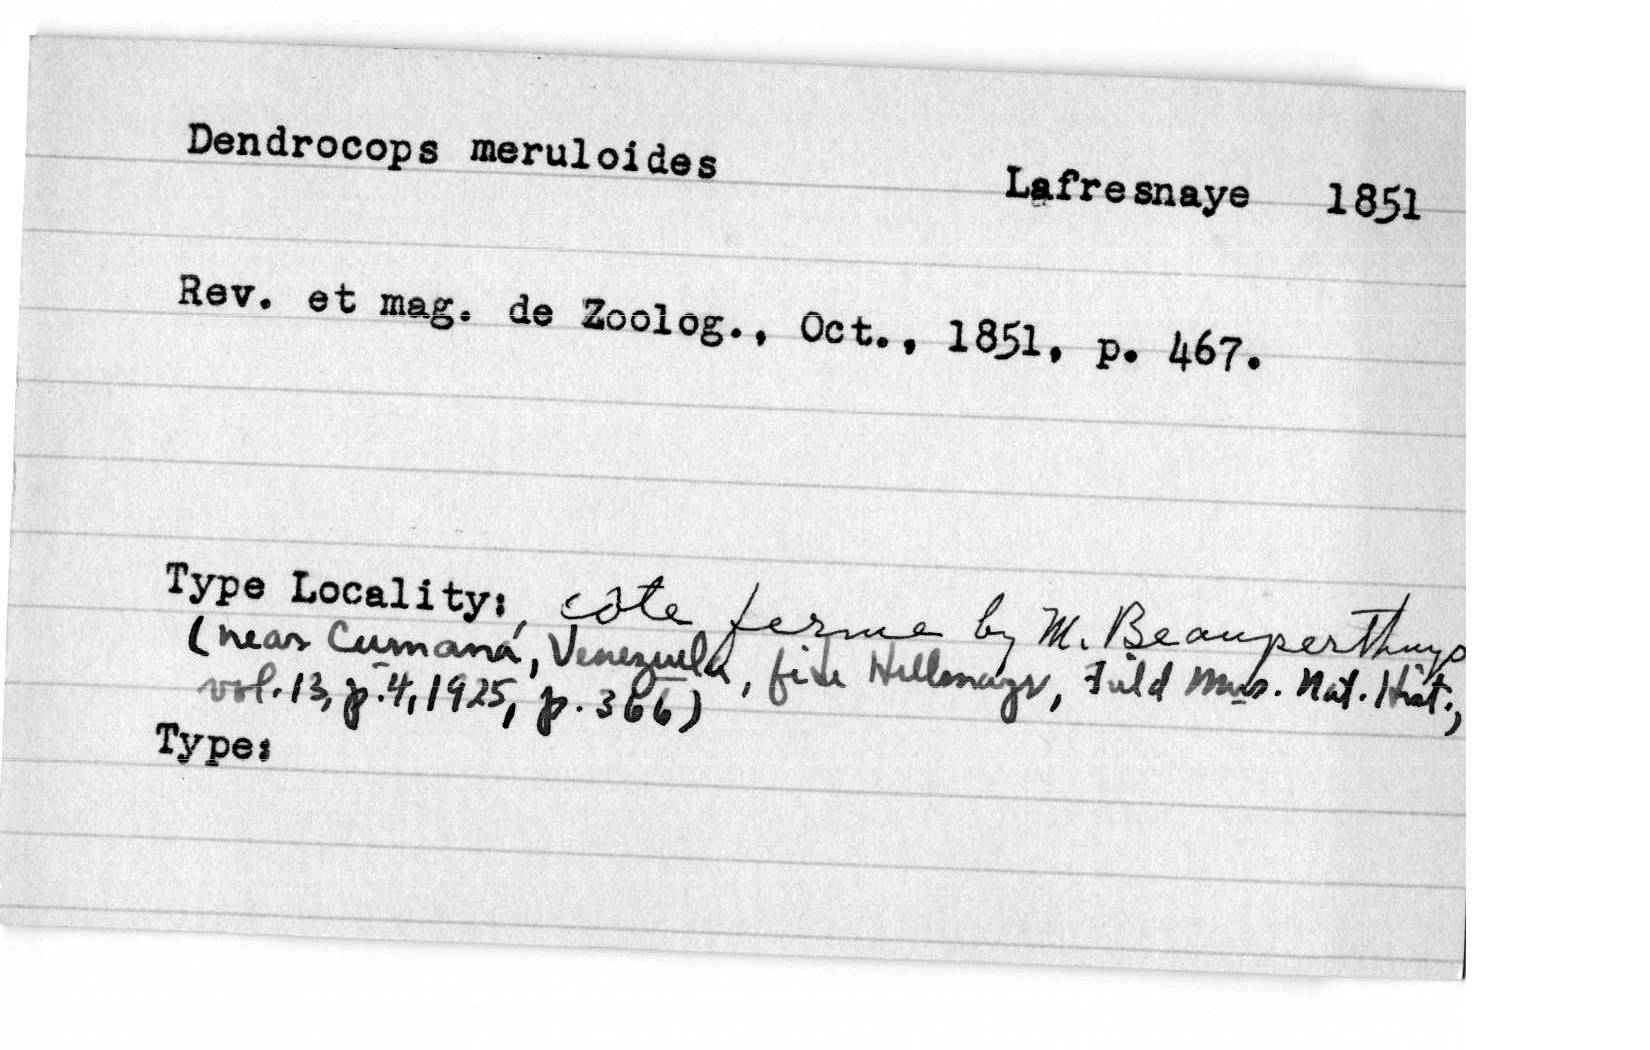 Dendrocops meruloides Lafresnaye 1851
Rev. et mag. de Zoolog., Oct., 1851, p. 467.
Type Locality: côte ferme by M. Beauperthuys
(near Cumaná, Venezuela, fide Hellmayr, Field Mus. Nat. Hist.,
vol. 13, p. 4, 1925, p. 366)
Type: